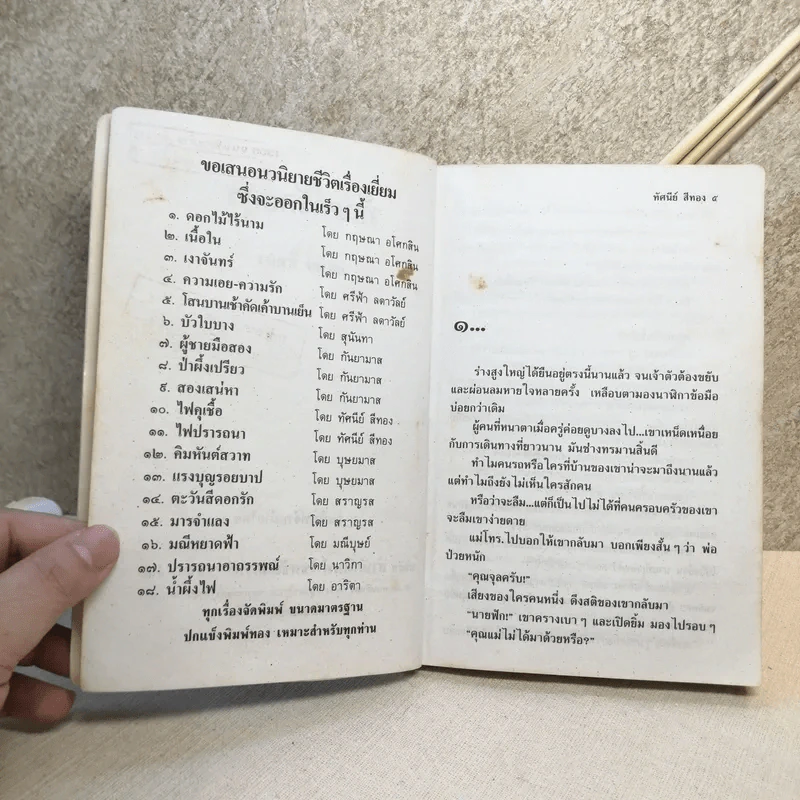 ขอเสนอนวนิยายชีวิตเรื่องเยี่ยม
ซึ่งจะออกในเร็ว ๆ นี้
๑. ดอกไม้ไร้นาม โดย กฤษณา อโศกสิน
๒. เนื้อใน โดย กฤษณา อโศกสิน
๓. เงาจันทร์ โดย กฤษณา อโศกสิน
๔. ความเอย-ความรัก โดย ศรีฟ้า ลดาวัลย์
๕. โสนบานเช้าคัดเค้าบานเย็น โดย ศรีฟ้า ลดาวัลย์
๖. บัวใบบาง โดย สุนันทา
๗. ผู้ชายมือสอง โดย กันยามาส
๘. ป่าผึ้งเปรียว โดย กันยามาส
๙. สองเสน่หา โดย กันยามาส
๑๐. ไฟคุเชื้อ โดย ทัศนีย์ สีทอง
๑๑. ไฟปรารถนา โดย ทัศนีย์ สีทอง
๑๒. คิมหันต์สวาท โดย บุษยมาส
๑๓. แรงบุญรอยบาป โดย บุษยมาส
๑๔. ตะวันสีดอกรัก โดย สราญรส
๑๕. มารจำแลง โดย สราญรส
๑๖. มณีหยาดฟ้า โดย มณีบุษย์
๑๗. ปรารถนาอาถรรพณ์ โดย นาวิกา
๑๘. น้ำผึ้งไฟ โดย อาริตา
ทุกเรื่องจัดพิมพ์ ขนาดมาตรฐาน
ปกแข็งพิมพ์ทอง เหมาะสำหรับทุกท่าน
ทัศนีย์ สีทอง ๕
๑...
ร่างสูงใหญ่ได้ยืนอยู่ตรงนี้นานแล้ว จนเจ้าตัวต้องขยับ
และผ่อนลมหายใจหลายครั้ง เหลือบตามองนาฬิกาข้อมือ
บ่อยกว่าเดิม
ผู้คนที่หนาตาเมื่อครู่ค่อยดูบางลงไป...เขาเหน็ดเหนื่อย
กับการเดินทางที่ยาวนาน มันช่างทรมานสิ้นดี
ทำไมคนรถหรือใครที่บ้านของเขาน่าจะมาถึงนานแล้ว
แต่ทำไมถึงยังไม่เห็นใครสักคน
หรือว่าจะลืม...แต่ก็เป็นไปไม่ได้ที่คนครอบครัวของเขา
จะลืมเขาง่ายดาย
แม่โทร.ไปบอกให้เขากลับมา บอกเพียงสั้น ๆ ว่า พ่อ
ป่วยหนัก
"คุณจุลครับ!"
เสียงของใครคนหนึ่ง ดึงสติของเขากลับมา
"นายฟัก!" เขาครางเบา ๆ และเปิดยิ้ม มองไปรอบ ๆ
"คุณแม่ไม่ได้มาด้วยหรือ?"